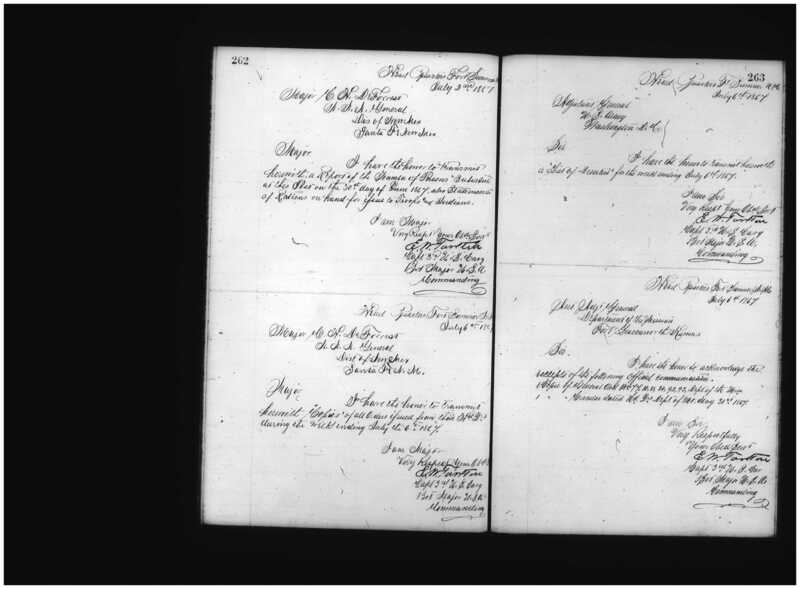 262
Head Quarters Fort Sumner
July 3rd 1867
Major C. H. De Forrest
A. A. A. General
Dis of New Mex
Santa Fe New Mex
Major
I have the honor to transmit
herewith a Report of the Number of Persons Subsisted
at this Post on the 30th day of June 1867, also Statement
of Rations on hand for issue to Troops and Indians.
I am Major
Very Respt Your Obt Servt
Capt 3rd U. S. Cavy
Bvt Major U. S. A.
Commanding
Head Quarters Fort Sumner N. M.
July 6th 1867
Major C. H. De Forrest
A. A. A. General
Dist of New Mex
Santa Fe N. M.
Major
I have the honor to transmit
herewith "Copies" of all Orders issued from these Hd. Qrs
during the week ending July the 6th 1867.
I am Major
Very Respect Your Obt
Capt 3rd U. S. Cavy
Bvt Major U. S. A.
Commanding
263
Head Quarters Ft Sumner N. M.
July 6th 1867
Adjutant General
U. S. Army
Washington D. C.
Sir
I have the honor to transmit herewith
a for the week ending July 6th 1867.
I am Sir
Very Respt Your Obt Servt
Capt 3rd U. S. Cavy
Bvt Major U. S. A.
Commanding
Head Quarters Fort Sumner N. M.
July 6th 1867
General
Department of the Missouri
Fort Leavenworth Kansas
Sir.
I have the honor to acknowledge the
receipt of the following Official communication.
Copies of General Ord. Dept of the Mo
1 " Circular dated Hd. Qrs Dept of Mo. 1867.
I am Sir
Very Respectfully
Your Obed Servt
Capt 3rd U. S. Cav
Bvt Major U. S. A.
Commanding